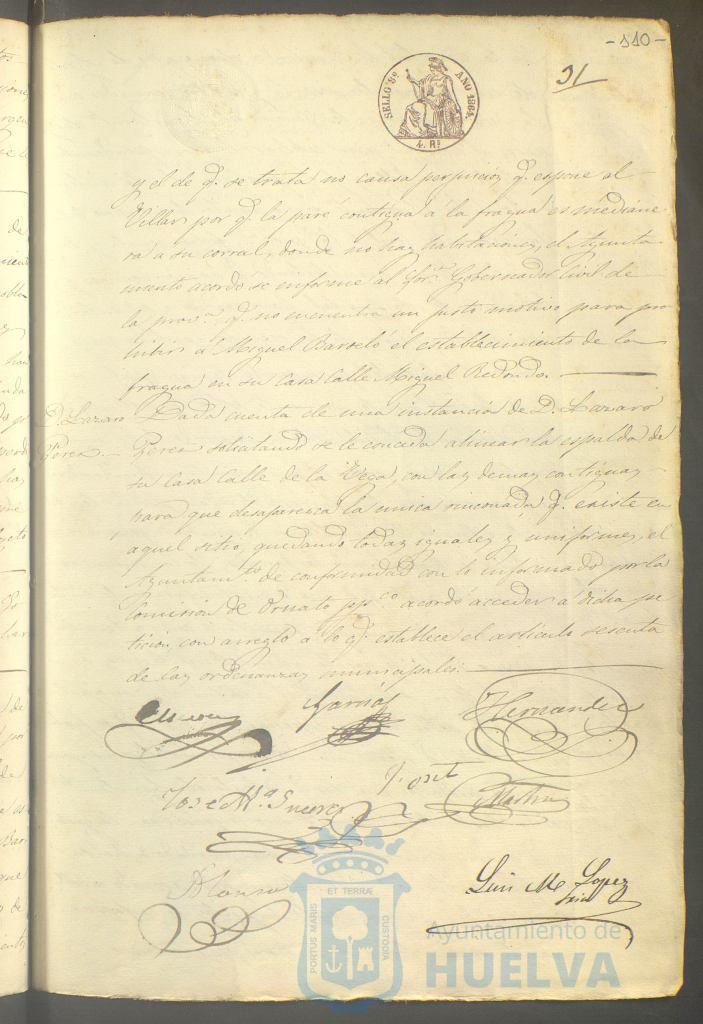 -110-
91
SELLO 8º AÑO 1864.
4. Rs
y el de q. se trata no causa perjuicio, q. espone el
Villar por q. la pare contigua á la fragua es mediane
ra á su corral, donde no hay habitaciones, el Ayunta
miento acordó se informe al Sor. Gobernador Civil de
la prova. q. no encuentra un justo motivo para pro
hibir á Miguel Barceló el establecimiento de la
fragua en su casa calle Miguel Redondo.
D. Lazaro Perea.
Dada cuenta de una instancia de D. Lazaro
Perea solicitando se le conceda alinear la espalda de
su casa calle de la Vega, con las demas contiguas
para que desaparezca la unica rinconada q. existe en
aquel sitio, quedando todas iguales y uniformes, el
Ayuntamto. de conformidad con lo informado por la
Comision de Ornato ppco. acordó acceder á dicha pe
ticion, con arreglo á lo q. establece el articulo sesenta
de las ordenanzas municipales.
Garcia
Hernandez
Jose Ma. Suarez
Martin
Alonso
Luis M. Lopez
PORTUS MARIS ET TERRÆ CUSTODIA
Ayuntamiento de
HUELVA